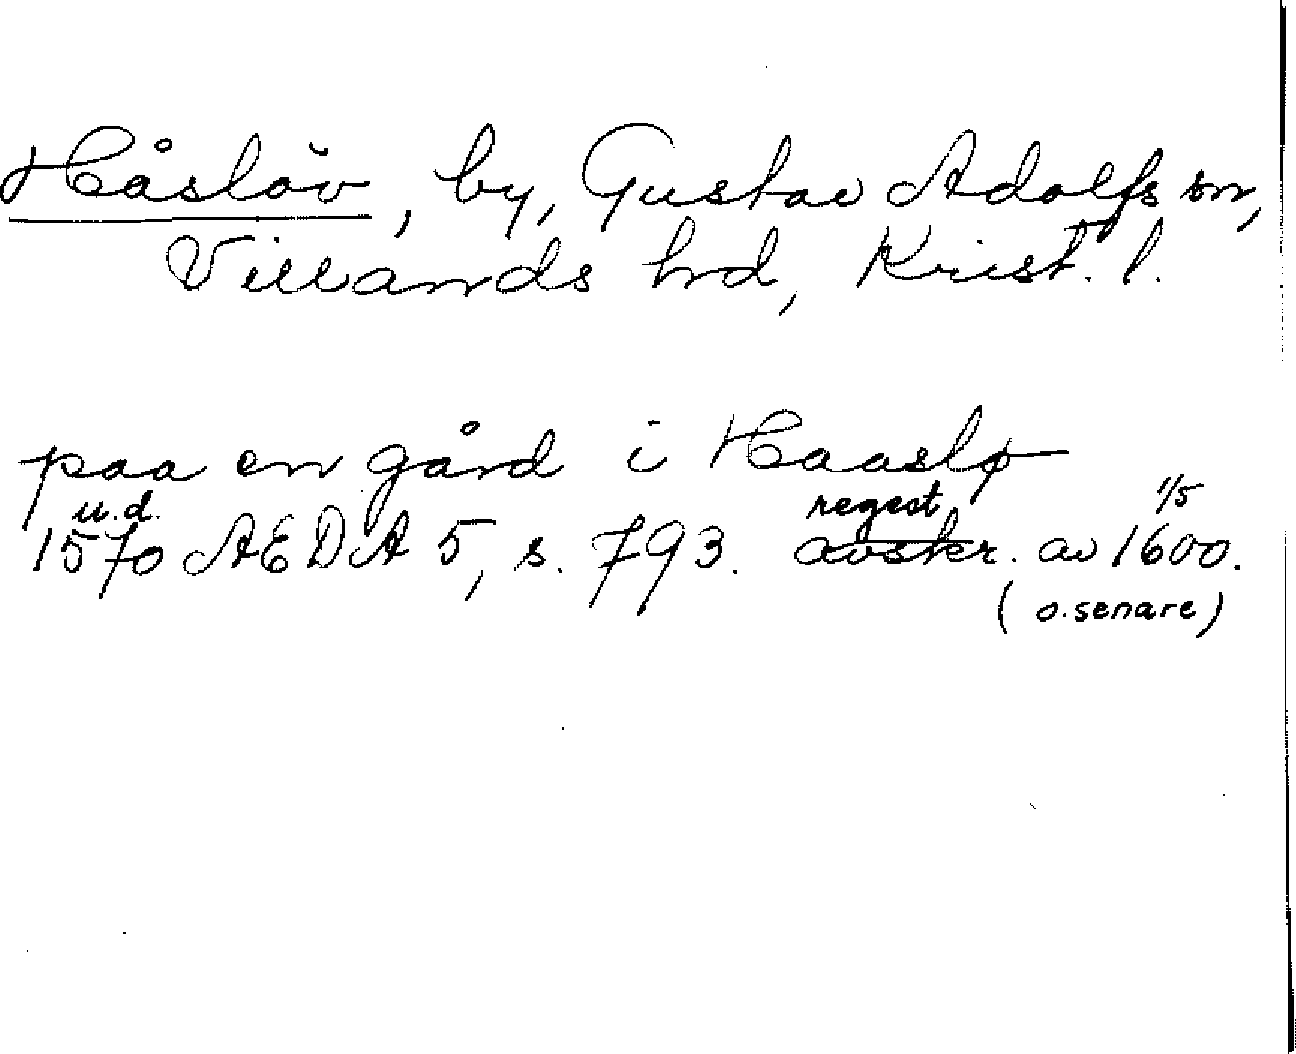 Håslöv, by, Gustav Adolfs sn,
Villands hd, Krist. l.
paa en gård i Haaslø
u.d. regest 1/5
1570 AEDA 5, s. 793. avskr. av 1600.
(o. senare)